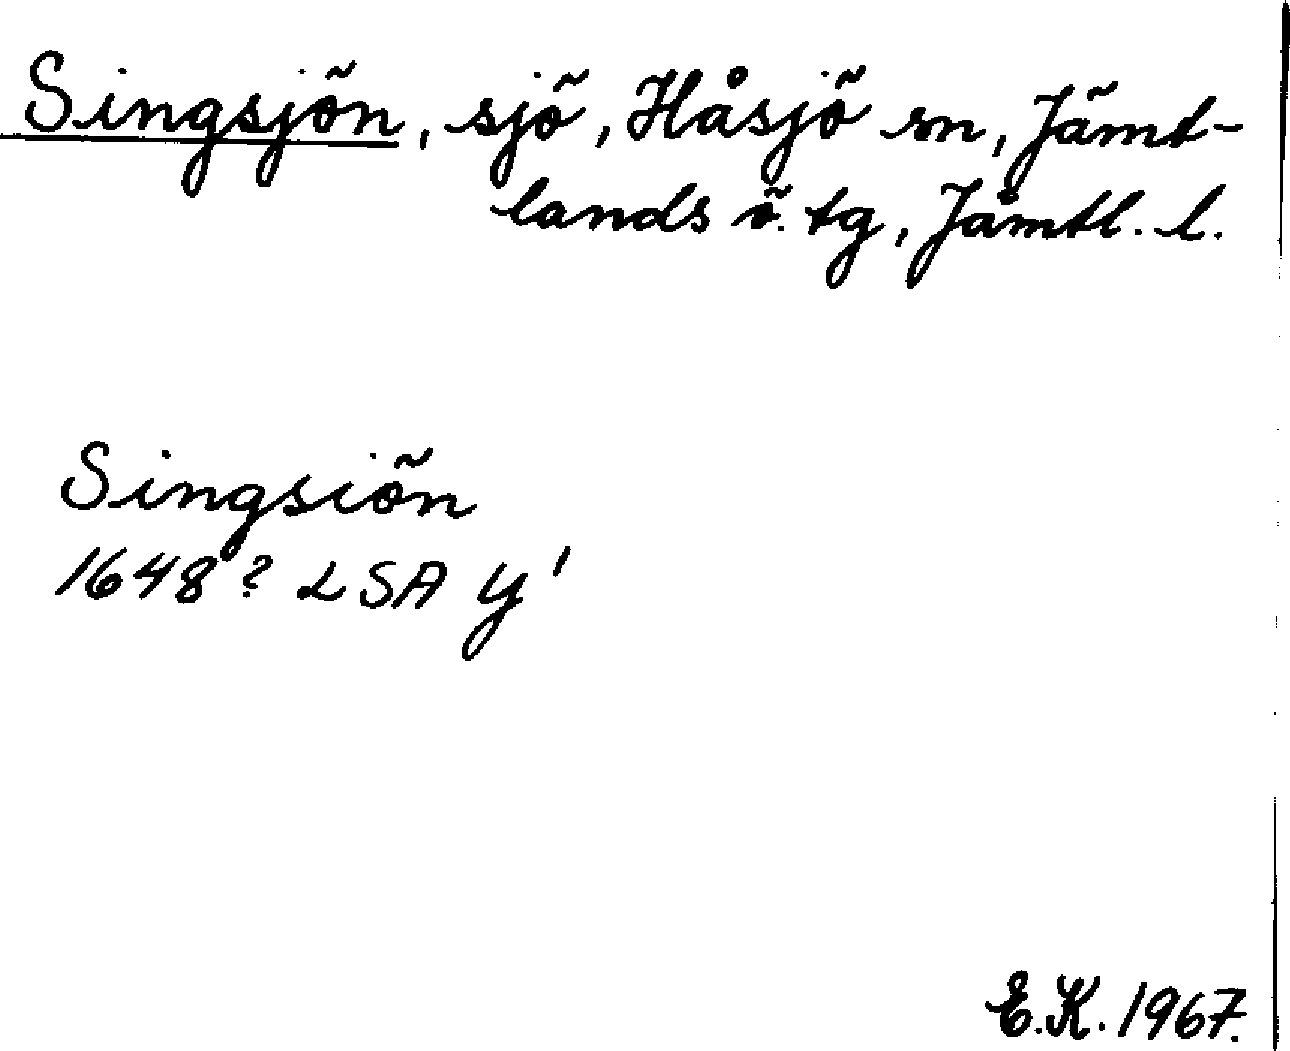 Singsjön, sjö, Håsjö sn, Jämt-
lands ö. tg, Jämtl. l.
Singsiön
1648? LSA Y'
E.K. 1967.